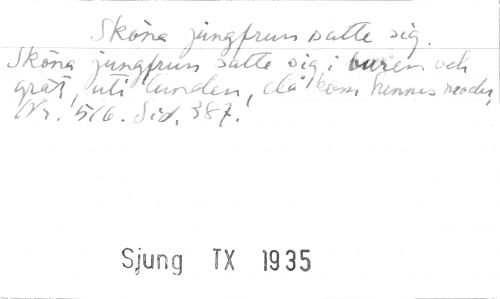 Sköna jungfrun satte sig.
Sköna jungfrun satte sig i buren och
grät, uti lunden, då kom hennes moder,
Nr. 516. Sid. 387.
Sjung TX 1935